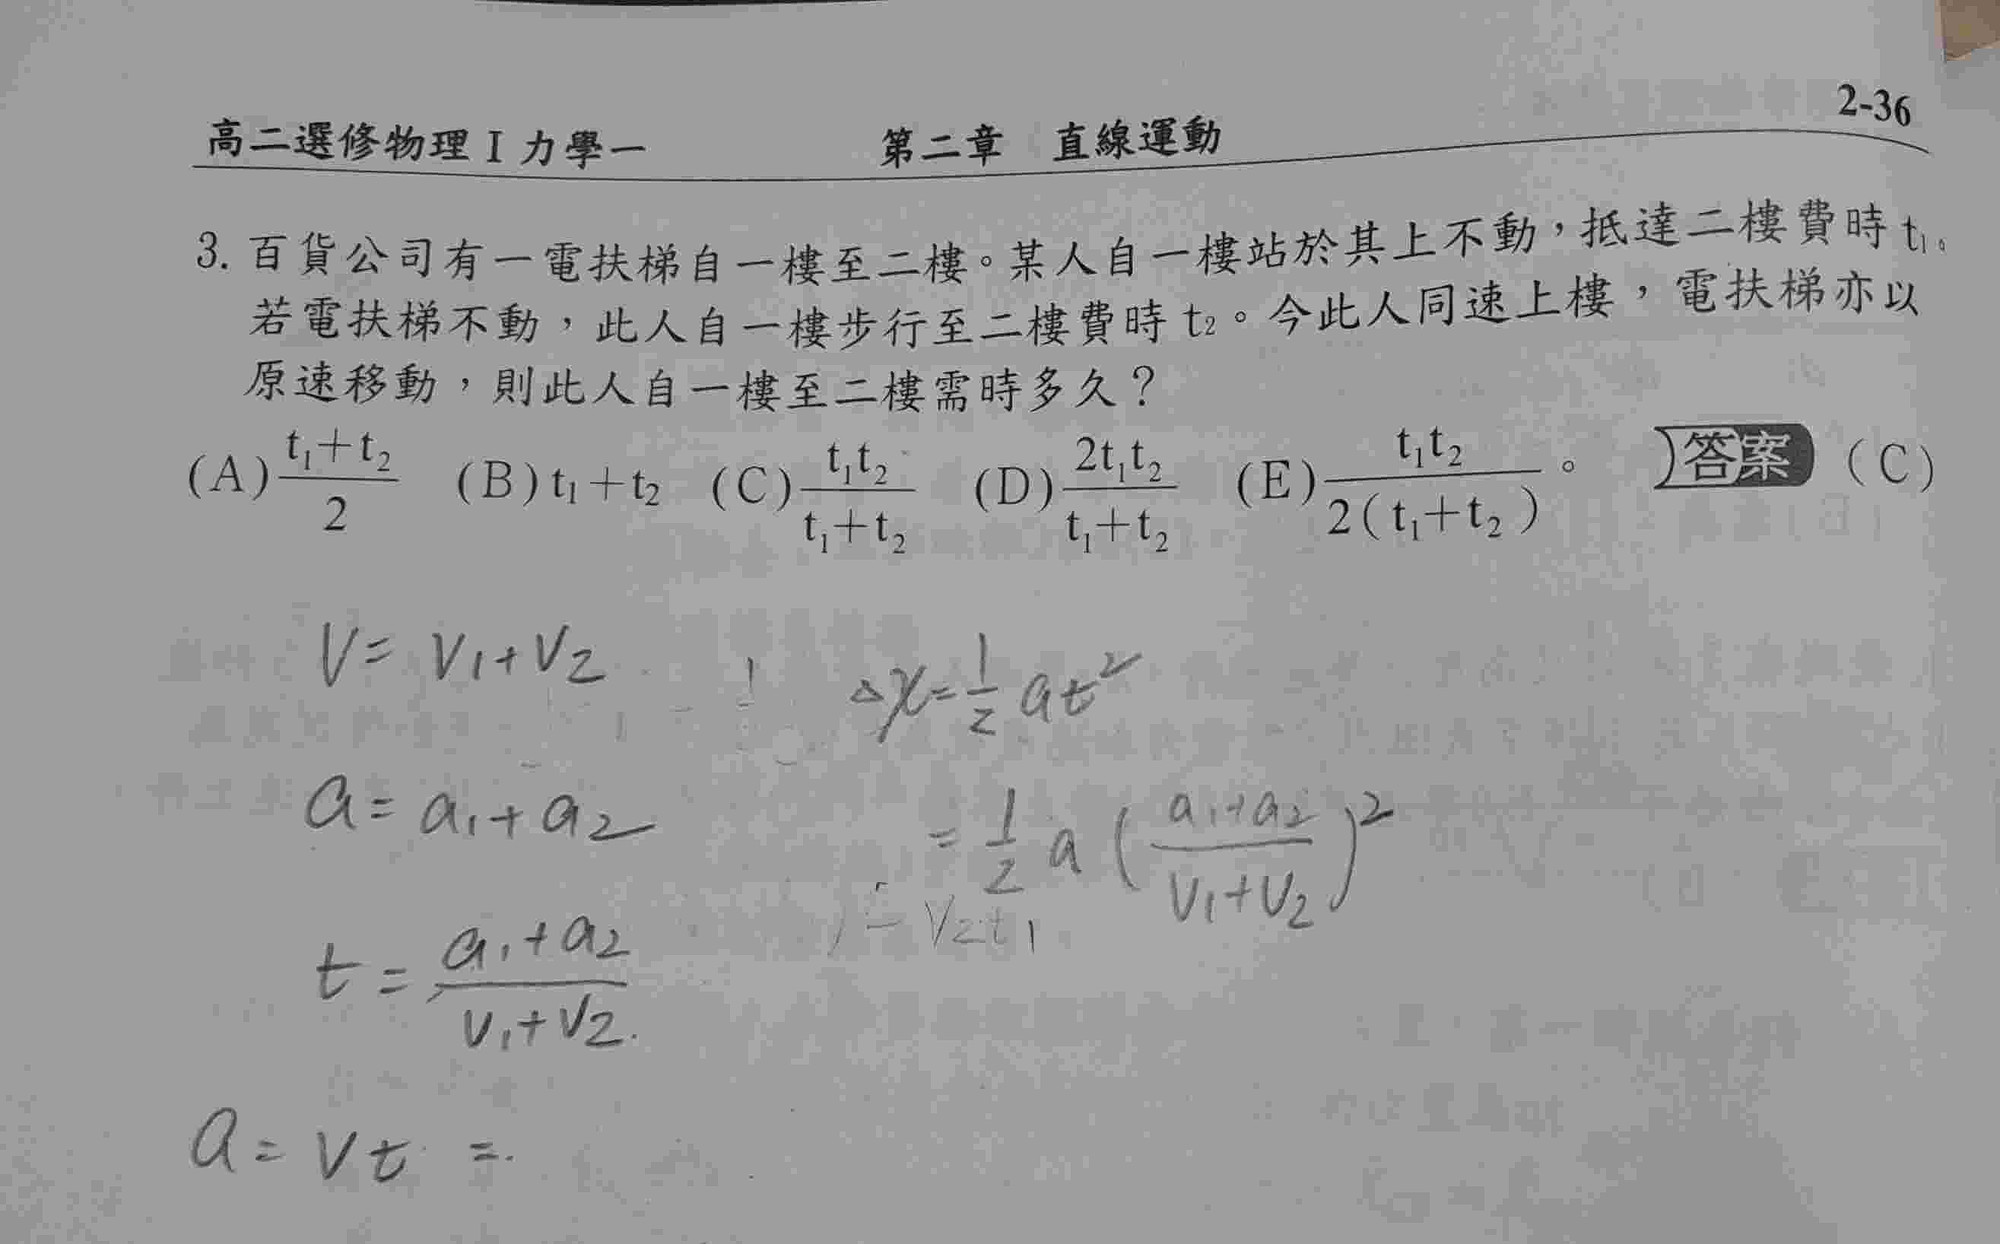 2-36
高二選修物理 I 力學一 第二章 直線運動
3. 百貨公司有一電扶梯自一樓至二樓。某人自一樓站於其上不動，抵達二樓費時 t₁。
若電扶梯不動，此人自一樓步行至二樓費時 t₂。今此人同速上樓，電扶梯亦以
原速移動，則此人自一樓至二樓需時多久？
(A) (t₁+t₂)/2 (B) t₁+t₂ (C) t₁t₂/(t₁+t₂) (D) 2t₁t₂/(t₁+t₂) (E) t₁t₂/2(t₁+t₂)。 答案 (C)
V = V₁+V₂ △x = 1/2 at²
a = a₁+a₂ = 1/2 a ((a₁+a₂)/(V₁+V₂))²
= V₂t₁
t = (a₁+a₂)/(V₁+V₂)
a = Vt =